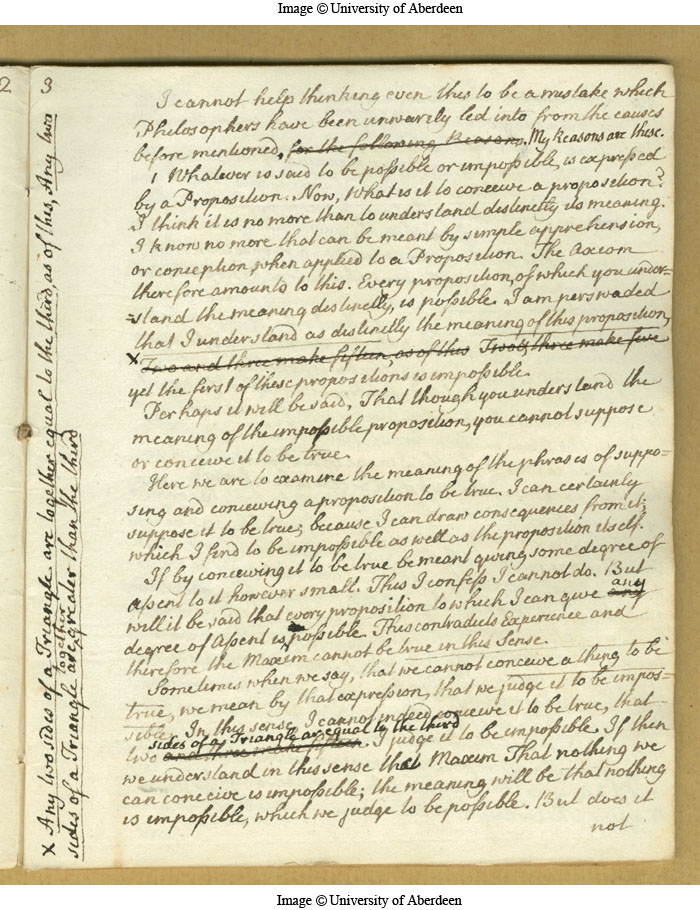 Image © University of Aberdeen
2
3
I cannot help thinking even this to be a mistake which
Philosophers have been unwarily led into from the causes
before mentioned, for the following Reasons. My Reasons are these.
1 Whatever is said to be possible or impossible, is expressed
by a Proposition. Now, What is it to conceive a proposition?
I think it is no more than to understand distinctly its meaning.
I know no more that can be meant by simple apprehension,
or conception when applied to a Proposition. The Axiom
therefore amounts to this. Every proposition, of which you under=
=stand the meaning distinctly, is possible. I am perswaded
that I understand as distinctly the meaning of this proposition,
x Two and three make fifteen, as of this Two & three make five
yet the first of these propositions is impossible.
Perhaps it will be said, That though you understand the
meaning of the impossible proposition, you cannot suppose
or conceive it to be true.
Here we are to examine the meaning of the phrases of suppo=
sing and conceiving a proposition to be true. I can certainly
suppose it to be true; because I can draw consequences from it;
which I find to be impossible as well as the proposition itself.
If by conceiving it to be true be meant giving some degree of
assent to it however small. This I confess I cannot do. But
will it be said that every proposition to which I can give any any
degree of Assent is possible. This contradicts Experience and
therefore the Maxim cannot be true in this Sense.
Sometimes when we say, that we cannot conceive a thing to be
true, we mean by that expression, that we judge it to be impos=
sible. In this sense I cannot indeed conceive it to be true, that
sides of a Triangle are equal to the third
two and three make fifteen. I judge it to be impossible. If then
we understand in this sense that Maxim That nothing we
can conceive is impossible; the meaning will be that nothing
is impossible, which we judge to be possible. But does it
not
x Any two sides of a Triangle are together equal to the third, as of this, Any two
together
sides of a Triangle are greater than the third
Image © University of Aberdeen